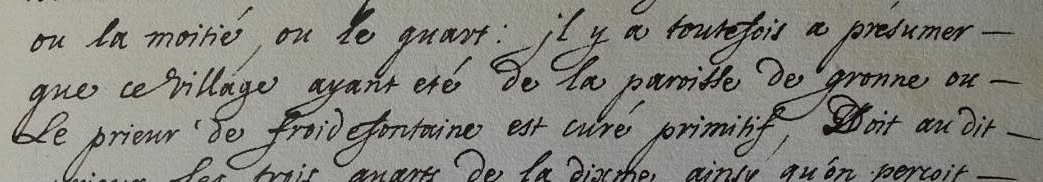 ou la moitié, ou le quart: il y a toutefois a présumer —
que ce village ayant eté de la paroisse de gronne ou —
Le prieur de froidefontaine est curé primitif, Doit au dit —
prieur les trois quarts de la dixme, ainsy qu'on perçoit —